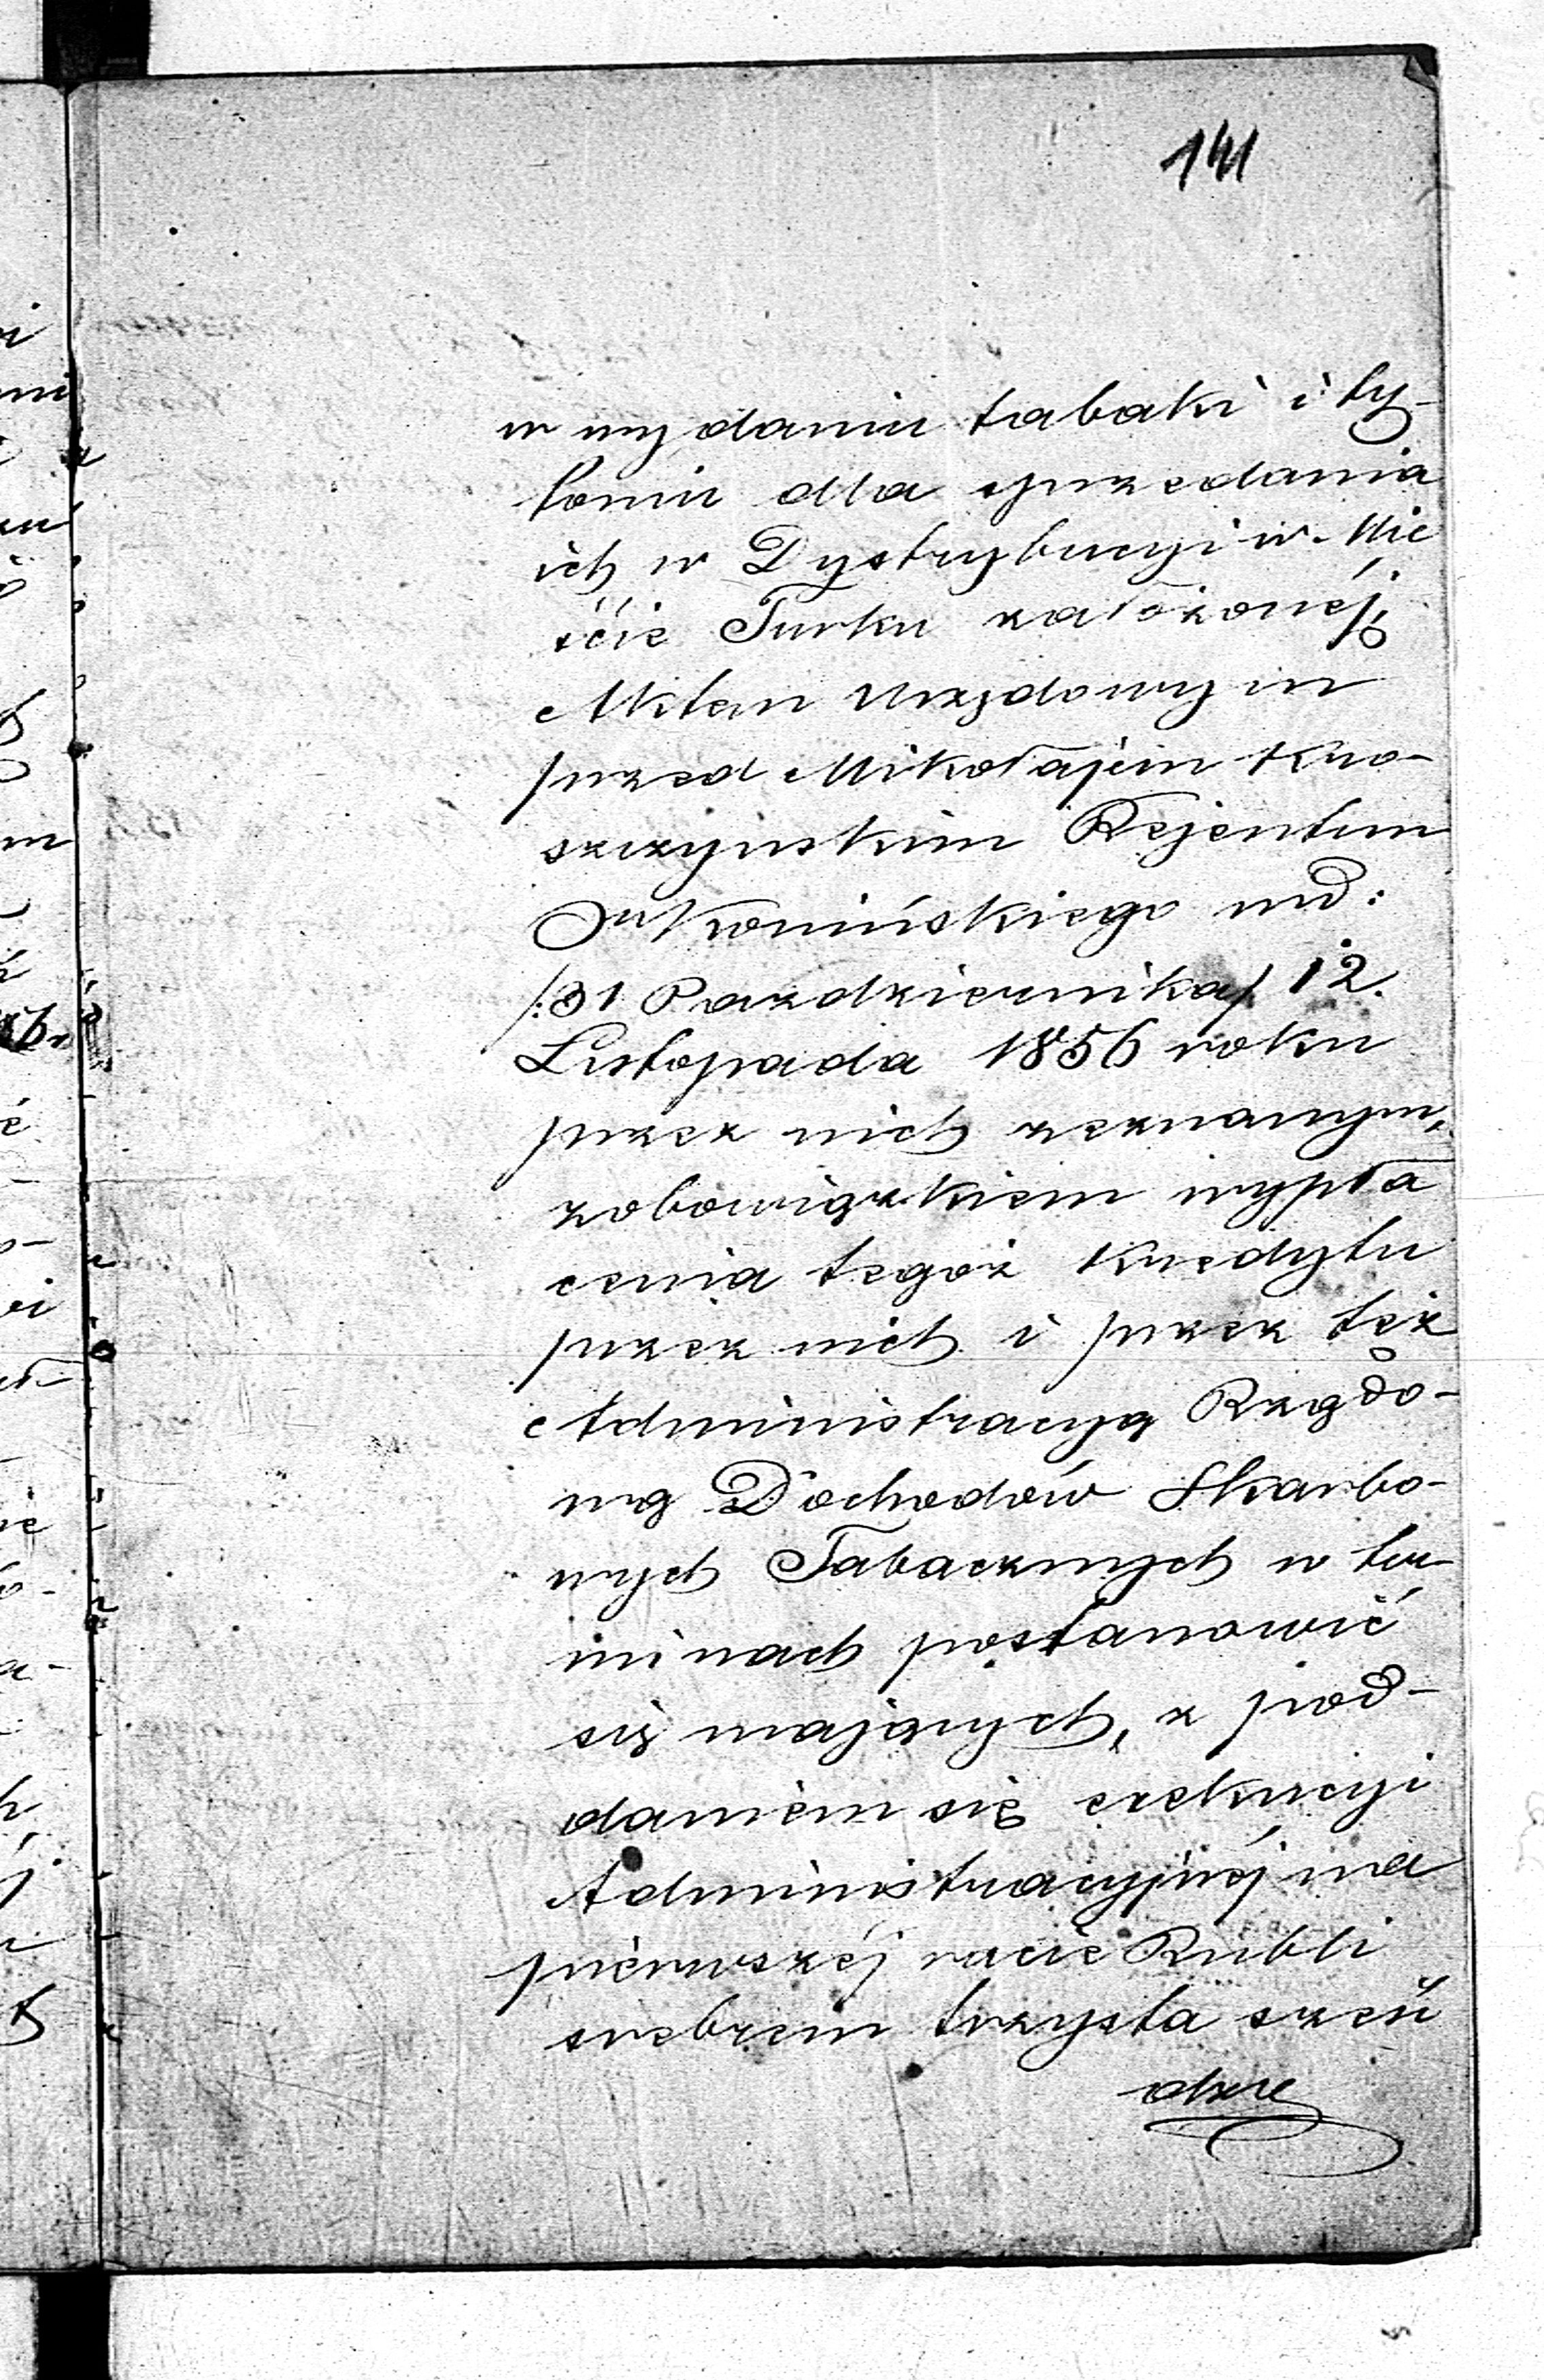 141
w wydaniu tabaki i ty-
toniu dla sprzedania
ich w Dystrybucyi w Mie
ście Turku założonéj,
Aktem Urzędowym
przed Mikołajem Kro-
szczyńskim Rejentem
Oᵘ Konińskiego nᵈ:
/:31 Pazdziernika/ 12.
Listopada 1856 roku
przez nich zeznanym,
zobowiązkiem wypła
cenia tegoż Kredytu
przez nich i przez też
Administracyą Rządo-
wą Dochodów Skarbo-
wych Tabacznych w ter
minach postanowić
się mających, z pod-
daniem się exekucyi
Administracyjnéj na
pierwszéj racie Rubli
srebrem trzysta sześć
dzie